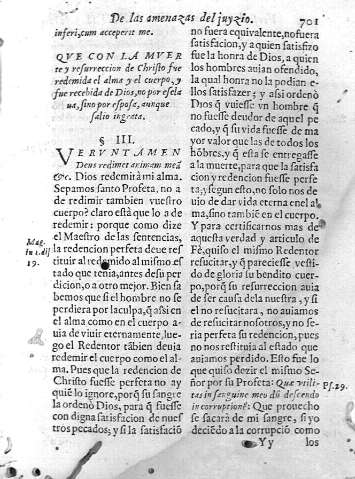 De las amenazas del juyzio. 701
inferi, cum acceperit me.
QVE CON LA MVER
te y resurreccion de Christo fue
redemida el alma y el cuerpo, y
fue recebida de Dios, no por escla
ua, sino por esposa, aunque
salio ingrata.
§ III.
VERVNTAMEN
Deus redimet animam meã
&c. Dios redemirà mi alma.
Sepamos santo Profeta, no a
de redimir tambien vuestro
cuerpo? claro està que lo a de
redemir: porque como dize
el Maestro de las sentencias,
la redencion perfeta deue res
tituir al redemido al mismo es
tado que tenia, antes de su per
dicion, o a otro mejor. Bien sa
bemos que si el hombre no se
perdiera por la culpa, q̃ assi en
el alma como en el cuerpo a-
uia de viuir eternamente, lue-
go el Redentor tãbien deuia
redemir el cuerpo como el al-
ma. Pues que la redencion de
Christo fuesse perfeta no ay
quiẽ lo ignore, porq̃ su sangre
la ordenò Dios, para q̃ fuesse
con digna satisfacion de nues
tros pecados; y si la satisfaciõ
Mag.
in 1. dis
19.
no fuera equiualente, no fuera
satisfacion, y a quien satisfizo
fue la honra de Dios, a quien
los hombres auian ofendido,
la qual honra no la podian e-
llos satisfazer; y assi ordenò
Dios q̃ vuiesse vn hombre q̃
no fuesse deudor de aquel pe
cado, y q̃ su vida fuesse de ma
yor valor que las de todos los
hõbres, y q̃ esta se entregasse
a la muerte, para que la satisfa
cion y redencion fuesse perfe
ta, y segun esto, no solo nos de
uio de dar vida eterna en el al
ma, sino tambiẽ en el cuerpo.
Y para certificarnos mas de
aquesta verdad y articulo de
Fè, quiso el mismo Redentor
resucitar, y q̃ pareciesse vesti-
do de gloria su bendito cuer-
po, porq̃ su resurreccion auia
de ser causa de la nuestra, y si
el no resucitara, no auiamos
de resucitar nosotros, y no se-
ria perfeta su redencion, pues
no nos restituia al estado que
auiamos perdido. Esto fue lo
que quiso dezir el mismo Se-
ñor por su Profeta: Quæ vtili-
tas in sanguine meo dũ descendo
in corruptionẽ? Que prouecho
se sacarà de mi sangre, si yo
deciẽdo a la corrupciõ como
Ps. 29.
Yy los